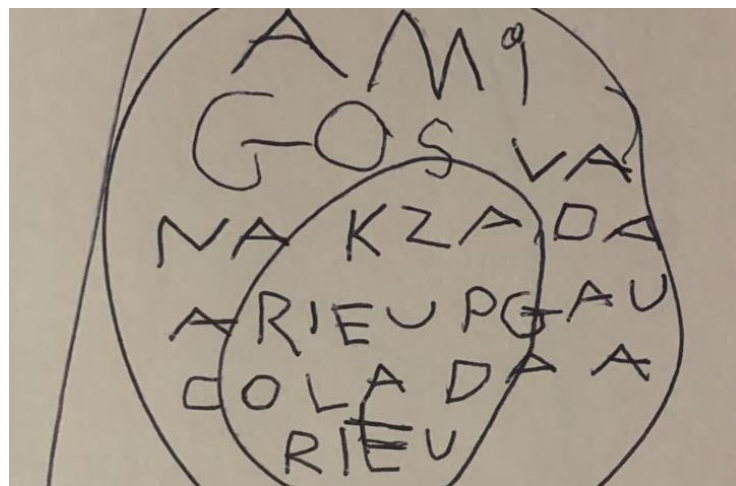 AMi
GOS VA
NA KZADA
ARIEUPGAU
COLADAA
RIEU